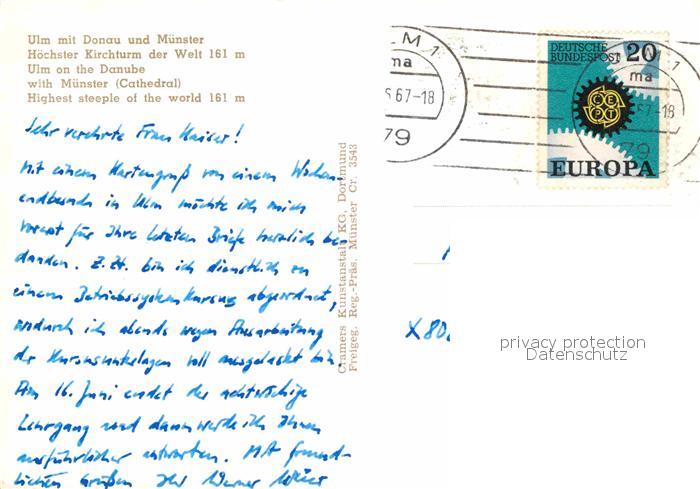 Ulm mit Donau und Münster
Höchster Kirchturm der Welt 161 m
Ulm on the Danube
with Münster (Cathedral)
Highest steeple of the world 161 m
Sehr verehrte Frau Kaiser!
Mit einem Kartengruß von einem Wochen-
endbesuch in Ulm möchte ich mich
vorerst für Ihre letzten Briefe herzlich be-
danken. Z.Zt. bin ich dienstlich zu
einem Betriebssystemkursus abgeordnet,
wodurch ich abends wegen Ausarbeitung
der Kursusunterlagen voll ausgelastet bin.
Am 16. Juni endet der achtwöchige
Lehrgang und dann werde ich Ihnen
ausführlicher antworten. Mit freund-
lichen Grüßen Ihr Werner
Cramers Kunstanstalt KG, Dortmund
Freigeg. Reg.-Präs. Münster Cr. 3543
LM 1
ma
6.67-18
79
DEUTSCHE
BUNDESPOST
20
CEPT
EUROPA
M 1
ma
67-18
79
X 80.
privacy protection
Datenschutz